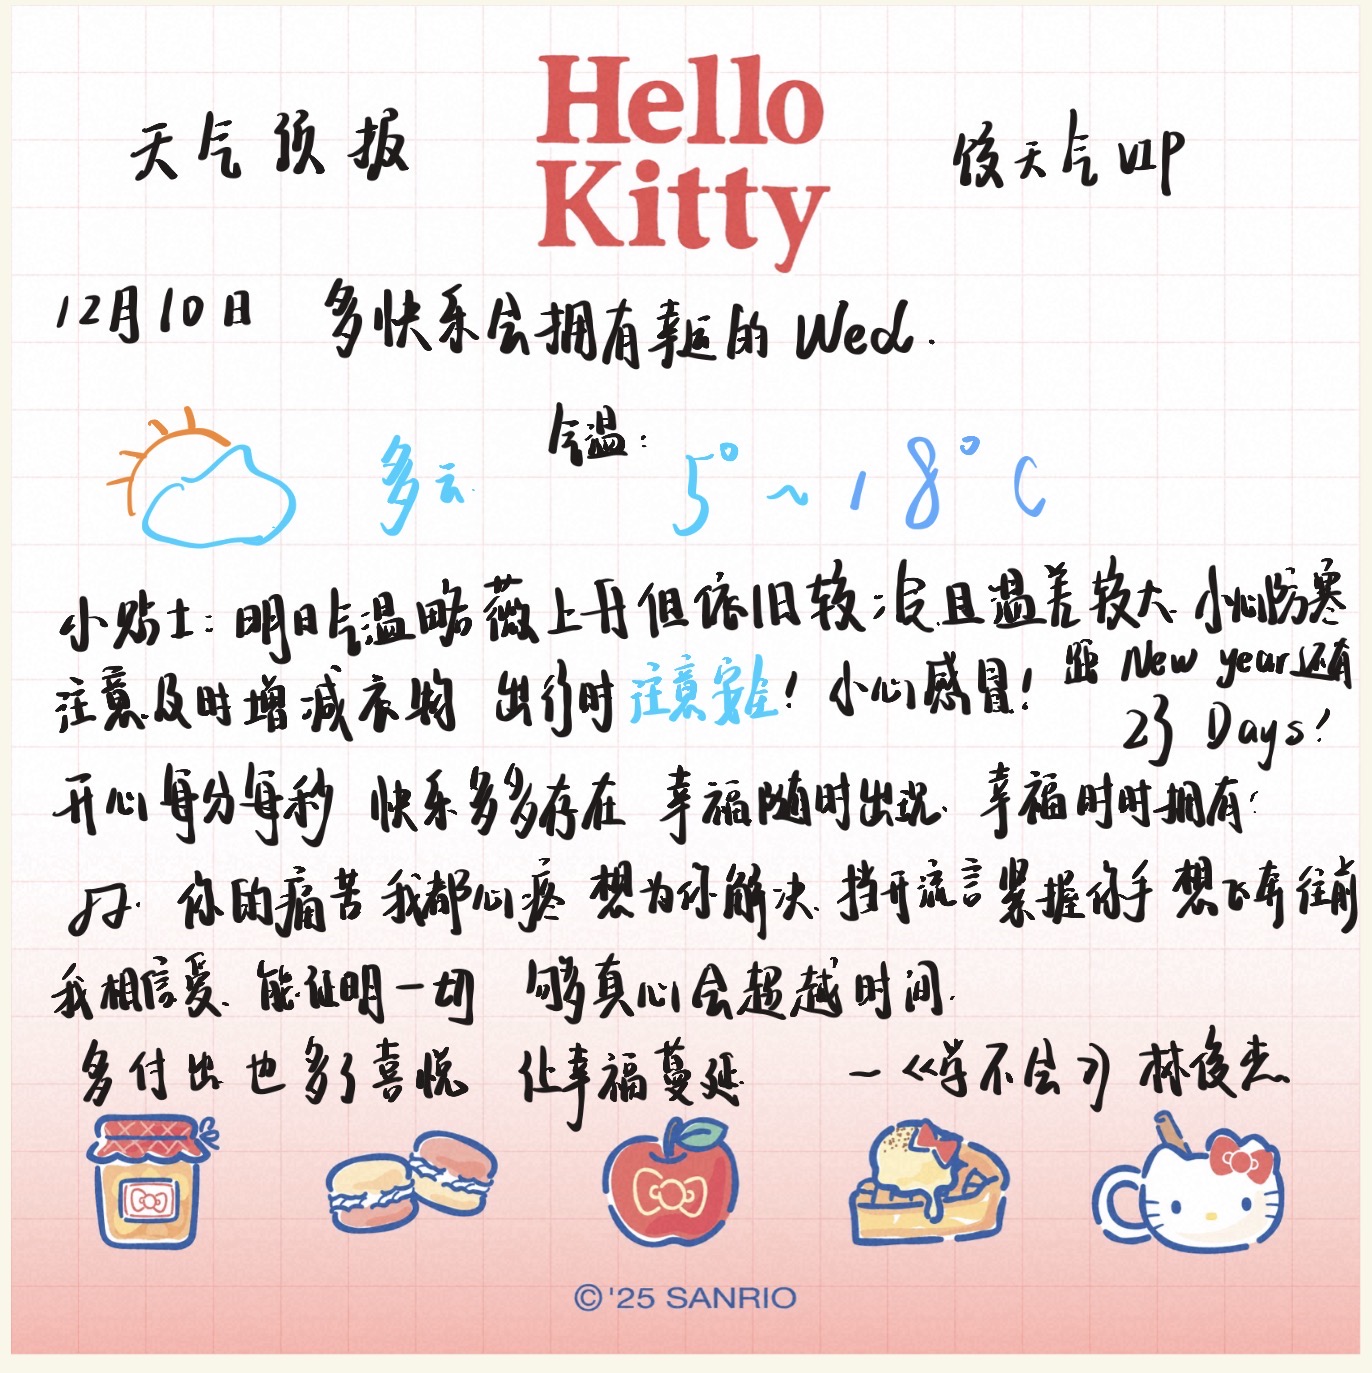 Hello
Kitty
天气预报
俊天气VIP
12月10日 多快乐会拥有幸运的 Wed.
气温:
多云 5°~18°C
小贴士:明日气温略微上升但依旧较冷且温差较大 小心防寒
注意及时增减衣物 出行时注意安全!小心感冒!
距 New year还有
23 Days!
开心每分每秒 快乐多多存在 幸福随时出现 幸福时时拥有!
你的痛苦 我都心疼 想为你解决 挡开流言 紧握你手 想飞奔往前
我相信爱 能证明一切 够真心会超越时间
多付出也多了喜悦 让幸福蔓延 —《学不会》林俊杰
©'25 SANRIO